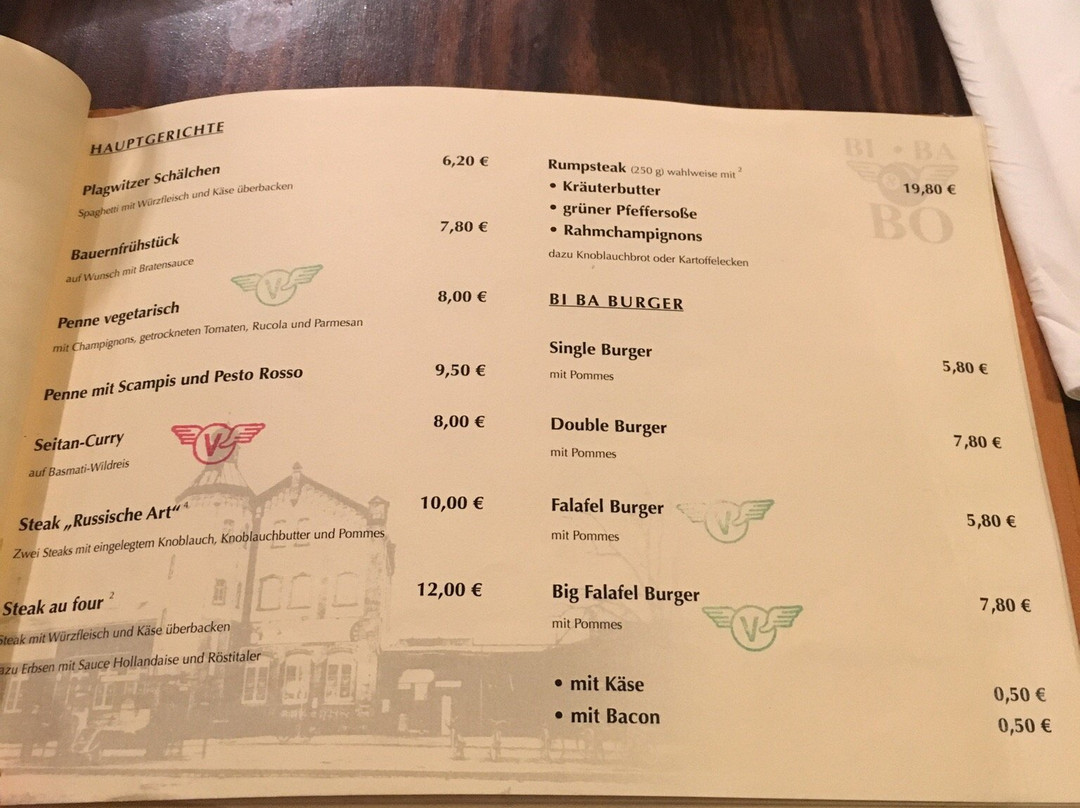 HAUPTGERICHTE
Plagwitzer Schälchen 6,20 €
Spaghetti mit Würzfleisch und Käse überbacken
Bauernfrühstück 7,80 €
auf Wunsch mit Bratensauce
V
Penne vegetarisch 8,00 €
mit Champignons, getrockneten Tomaten, Rucola und Parmesan
Penne mit Scampis und Pesto Rosso 9,50 €
Seitan-Curry 8,00 €
V
auf Basmati-Wildreis
Steak „Russische Art“ 4 10,00 €
Zwei Steaks mit eingelegtem Knoblauch, Knoblauchbutter und Pommes
Steak au four 2 12,00 €
Steak mit Würzfleisch und Käse überbacken
azu Erbsen mit Sauce Hollandaise und Röstitaler
BI • BA
BO
Rumpsteak (250 g) wahlweise mit 2 19,80 €
• Kräuterbutter
• grüner Pfeffersoße
• Rahmchampignons
dazu Knoblauchbrot oder Kartoffelecken
BI BA BURGER
Single Burger 5,80 €
mit Pommes
Double Burger 7,80 €
mit Pommes
Falafel Burger V 5,80 €
mit Pommes
Big Falafel Burger 7,80 €
mit Pommes V
• mit Käse 0,50 €
• mit Bacon 0,50 €